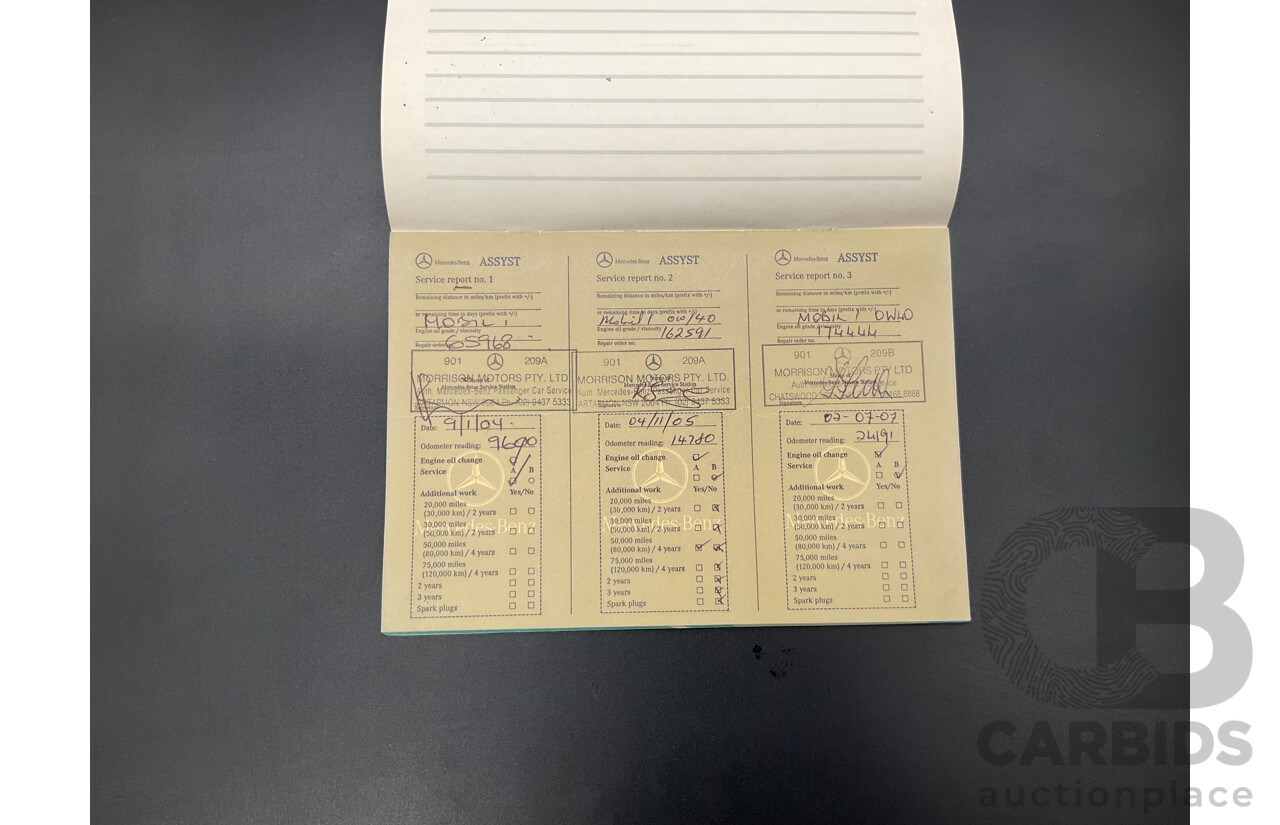 Mercedes-Benz ASSYST
Service report no. 1
Remaining distance in miles/km (prefix with +/-)
or remaining time in days (prefix with +/-)
MOBIL 1
Engine oil grade / viscosity
65968
Repair order no.
901 209A
MORRISON MOTORS PTY. LTD.
Auth Mercedes-Benz Passenger Car Service
ARTARMON NSW 2064 Ph (02) 9437 5333
Date: 9/1/04
Odometer reading: 9600
Engine oil change
Service A B
Additional work Yes/No
20,000 miles
(30,000 km) / 2 years
30,000 miles
(50,000 km) / 2 years
50,000 miles
(80,000 km) / 4 years
75,000 miles
(120,000 km) / 4 years
2 years
3 years
Spark plugs
Mercedes-Benz ASSYST
Service report no. 2
Remaining distance in miles/km (prefix with +/-)
or remaining time in days (prefix with +/-)
Mobil 1 0W/40
Engine oil grade / viscosity
162591
Repair order no.
901 209A
MORRISON MOTORS PTY. LTD.
Mercedes-Benz Service Station
Auth Mercedes-Benz Passenger Car Service
ARTARMON NSW 2064 Ph (02) 9437 5333
Signature
Date: 04/11/05
Odometer reading: 14780
Engine oil change
Service A B
Additional work Yes/No
20,000 miles
(30,000 km) / 2 years
30,000 miles
(50,000 km) / 2 years
50,000 miles
(80,000 km) / 4 years
75,000 miles
(120,000 km) / 4 years
2 years
3 years
Spark plugs
Mercedes-Benz ASSYST
Service report no. 3
Remaining distance in miles/km (prefix with +/-)
or remaining time in days (prefix with +/-)
MOBIL 1 0W40
Engine oil grade / viscosity
174444
Repair order no.
901 209B
MORRISON MOTORS PTY. LTD.
Mercedes-Benz Service Station
CHATSWOOD
Signature
Date: 02-07-07
Odometer reading: 24191
Engine oil change
Service A B
Additional work Yes/No
20,000 miles
(30,000 km) / 2 years
30,000 miles
(50,000 km) / 2 years
50,000 miles
(80,000 km) / 4 years
75,000 miles
(120,000 km) / 4 years
2 years
3 years
Spark plugs
Mercedes-Benz
CARBIDS
auctionplace